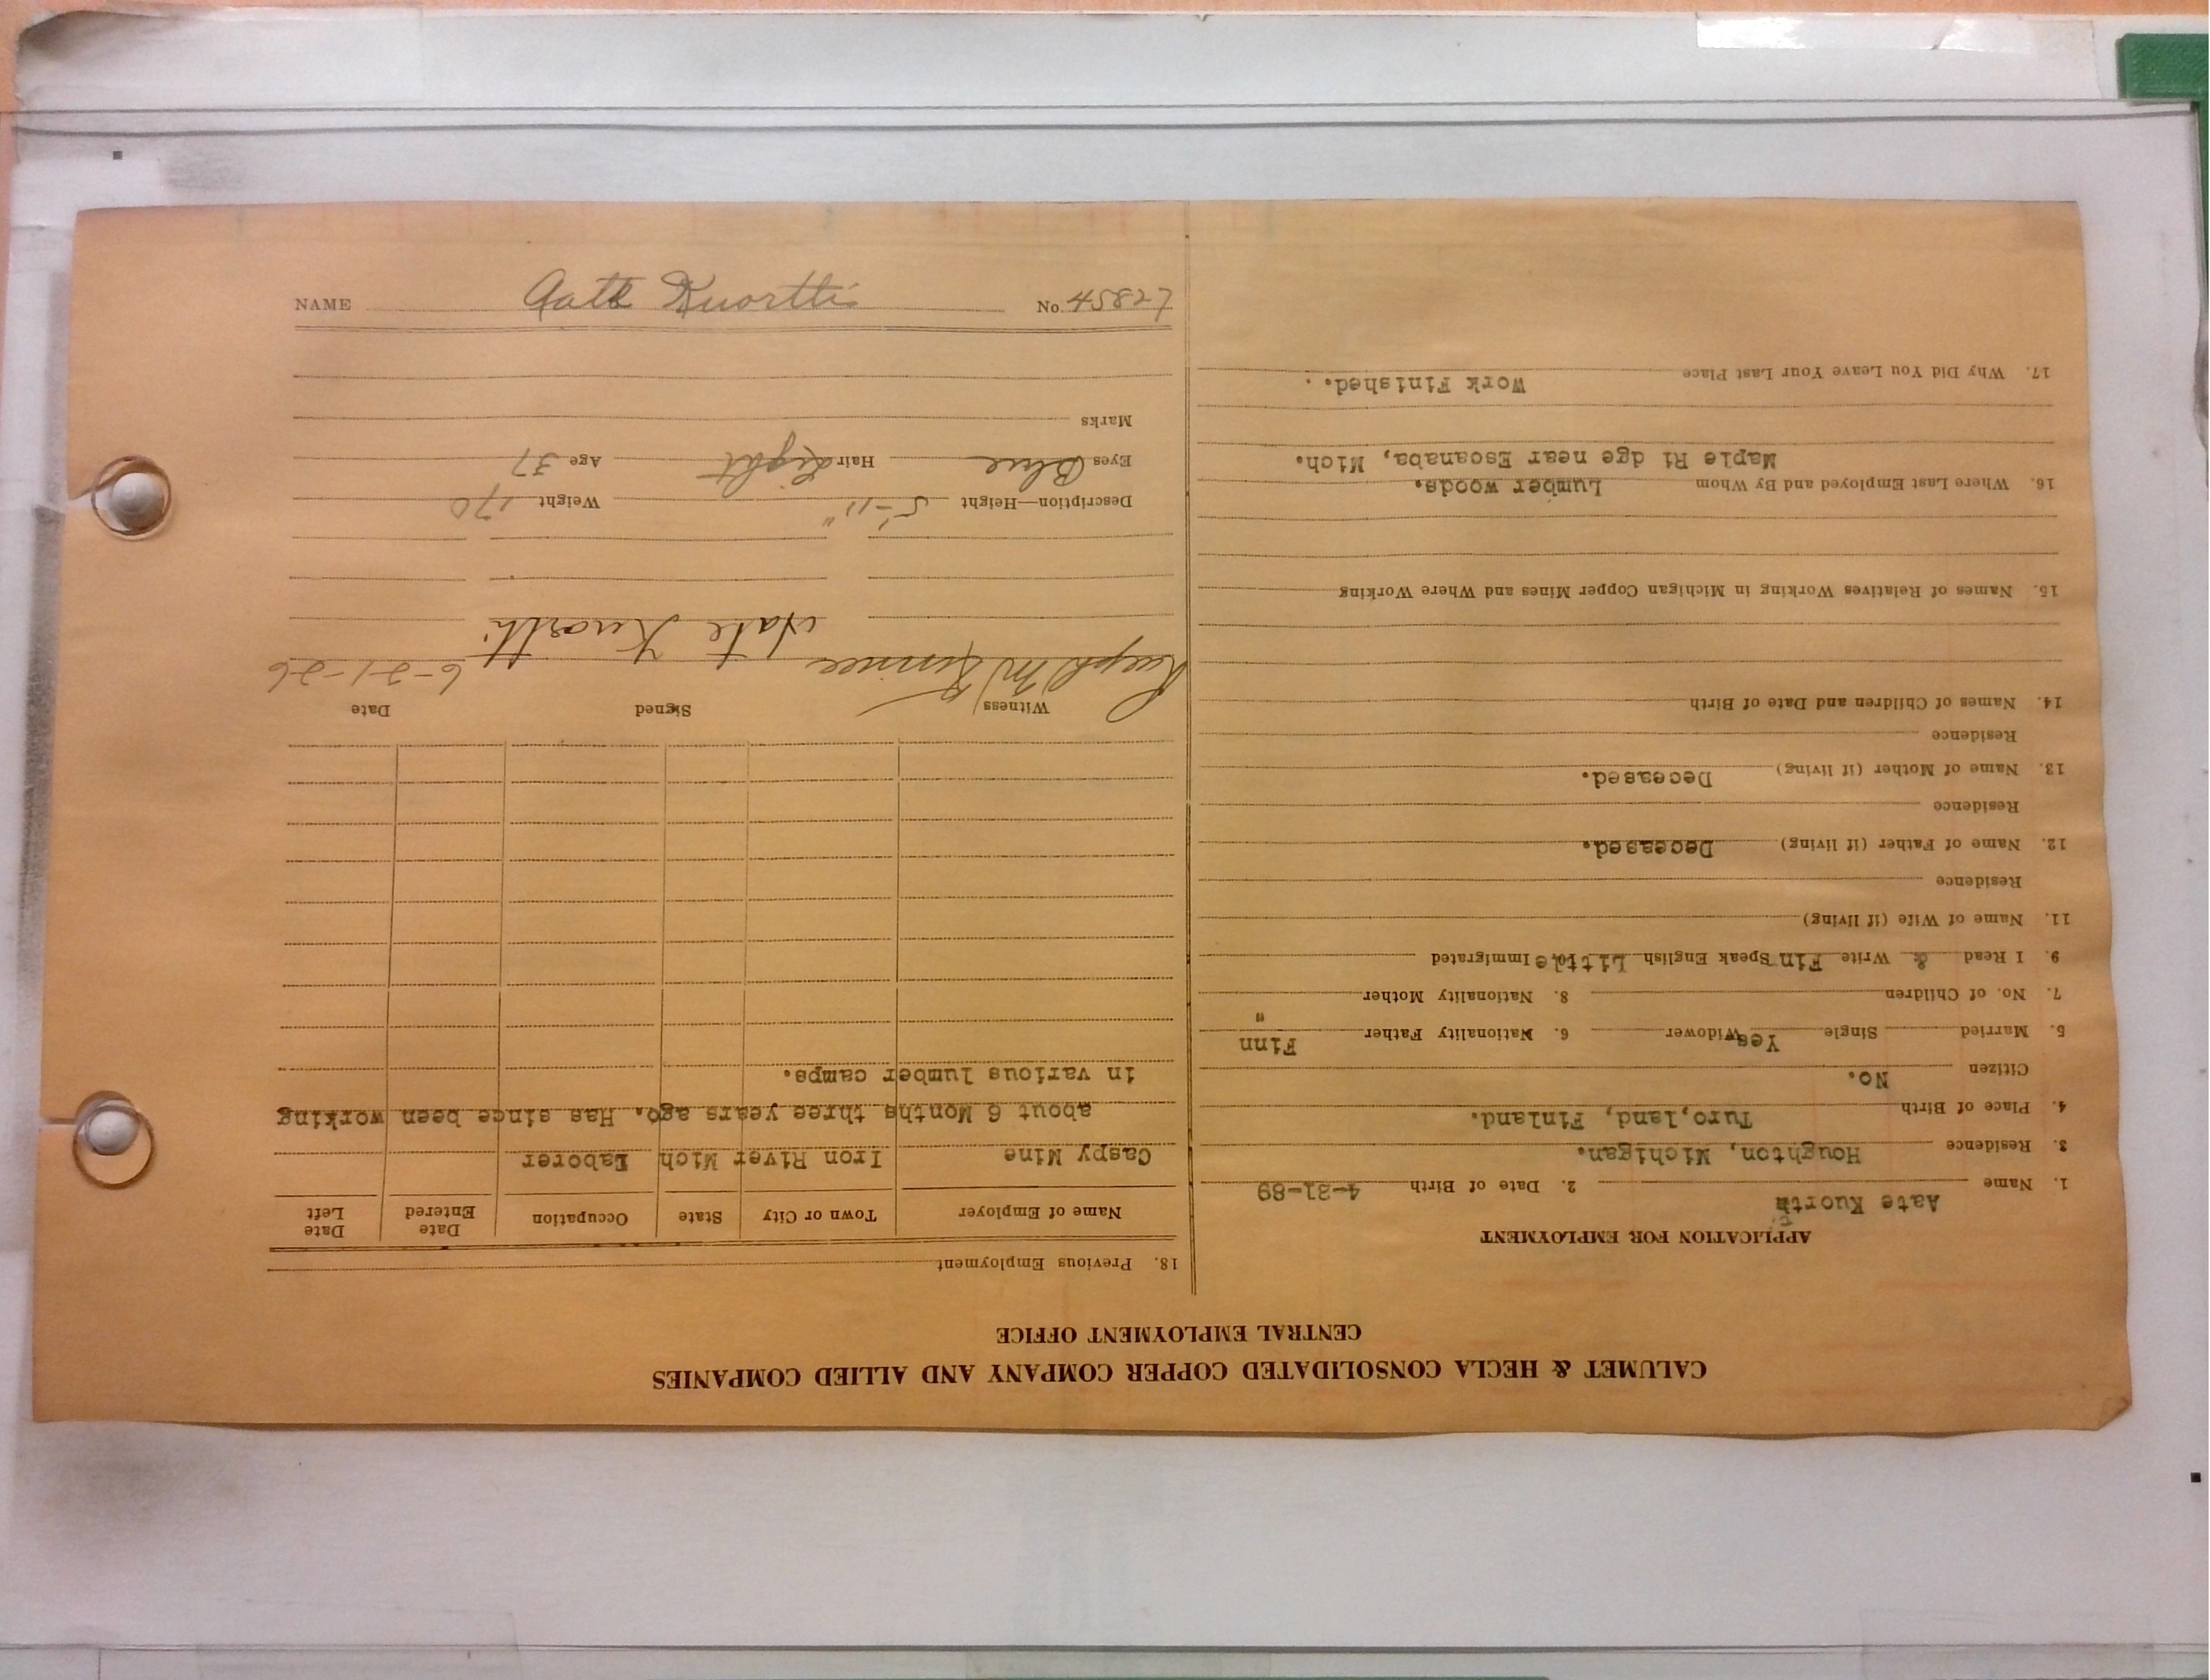 CALUMET & HECLA CONSOLIDATED COPPER COMPANY AND ALLIED COMPANIES
CENTRAL EMPLOYMENT OFFICE
APPLICATION FOR EMPLOYMENT
1. Name Aate Kuortti 2. Date of Birth 4-31-89
3. Residence Houghton, Michigan.
4. Place of Birth Turo,land, Finland.
Citizen No.
5. Married Single Yes Widower 6. Nationality Father Finn
7. No. of Children 8. Nationality Mother "
9. I Read & Write Fin Speak English Little Immigrated
11. Name of Wife (if living)
Residence
12. Name of Father (if living) Deceased.
Residence
13. Name of Mother (if living) Deceased.
Residence
14. Names of Children and Date of Birth
15. Names of Relatives Working in Michigan Copper Mines and Where Working
16. Where Last Employed and By Whom Lumber woods.
Maple Ri dge near Escanaba, Mich.
17. Why Did You Leave Your Last Place Work Finished.
18. Previous Employment
Name of Employer Town or City State Occupation Date Entered Date Left
Caspy Mine Iron River Mich Laborer
about 6 Months three years ago. Has since been working
in various lumber camps.
Witness Signed Date
Aate Kuortti 6-21-26
Description—Height 5'-11" Weight 170
Eyes Blue Hair Light Age 37
Marks
NAME Aate Kuortti No. 45827